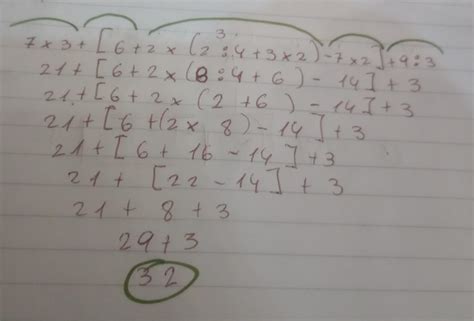 7 x 3 + [6 + 2 x (2³ : 4 + 3 x 2) - 7 x 2] + 9 : 3
21 + [6 + 2 x (8 : 4 + 6) - 14] + 3
21 + [6 + 2 x (2 + 6) - 14] + 3
21 + [6 + (2 x 8) - 14] + 3
21 + [6 + 16 - 14] + 3
21 + [22 - 14] + 3
21 + 8 + 3
29 + 3
32